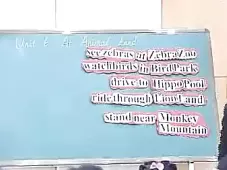 Unit 6 At Animal Land
see zebras at Zebra Zoo
watch birds in Bird Park
drive to Hippo Pool
ride through Lion Land
stand near Monkey
Mountain